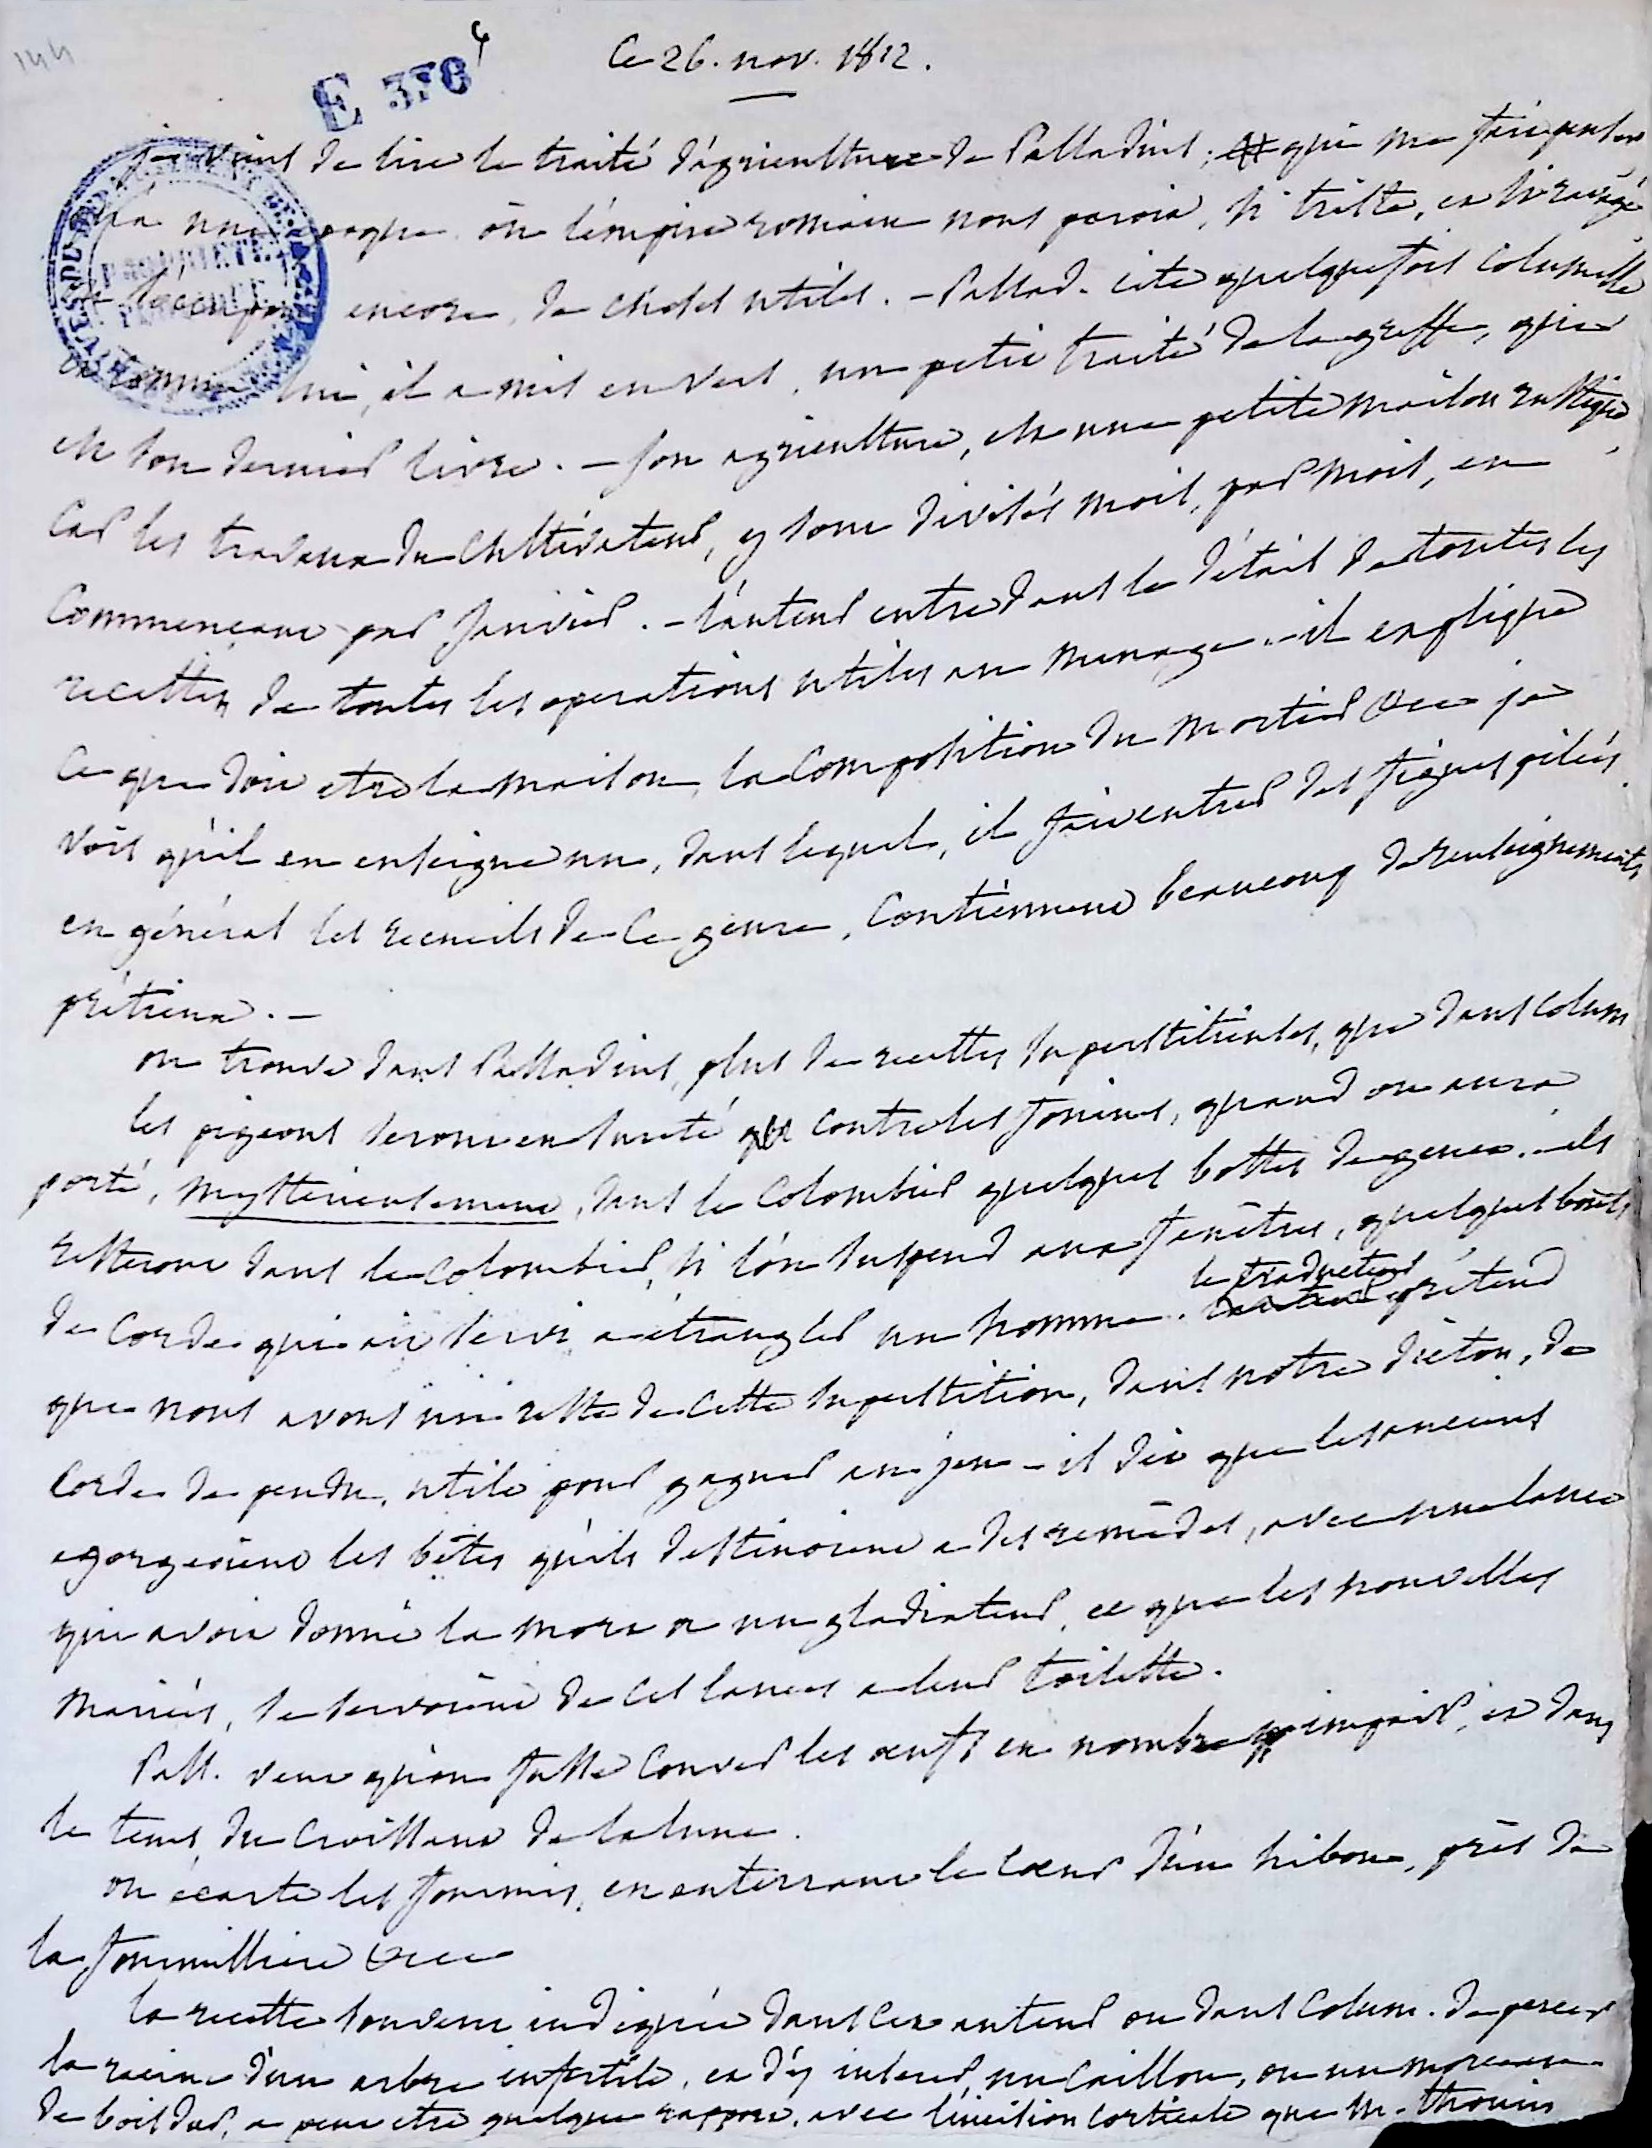 144
E 376 4
Ce 26. nov. 1812.
je viens de lire le traité d'agriculture de Palladius, qui me fait penser
qu'a une epoque où l'empire romain nous paroit, si triste, et si ravagé
on s'occupoit encore, de choses utiles. - Pallad. cite quelquefois columelle
et comme lui, il a mis en vers, un petit traité de la greffe, qui
est son dernier livre. - son agriculture, est une petite maison rustique,
car les travaux du cultivateur, y sont divisés mois, par mois, en
commençant par janvier. - l'auteur entre dans le détail de toutes les
recettes, de toutes les operations utiles au menage. - il explique
ce que doit etre la maison, la composition du mortier &cc je
vois qu'il en enseigne un, dans lequel, il fait entrer des figues pilées.
en général les recueils de ce genre, contiennent beaucoup de renseignements
prétieux. -
on trouve dans Palladius, plus de recettes superstitieuses, que dans colum
les pigeons seront en sureté contre les fouines, quand on aura
porté, mysterieusement, dans le colombier quelques bottes de genet. - ils
resteront dans le colombier, si l'on suspend aux fenêtres, quelques bouts
de corde qui ait servi a étrangler un homme. le traducteur prétend
que nous avons un reste de cette superstition, dans notre dicton, de
corde de pendu, utile pour gagner au jeu - il dit que les anciens
egorgeoient les bêtes qu'ils destinoient a des remèdes, avec une lance
qui avoit donné la mort a un gladiateur, et que les nouvelles
mariées, se servoient de ces lances a leur toilette.
Pall. veut qu'on fasse couver les œufs en nombre impair, et dans
le tems, du croissant de la lune.
on écarte les fourmis, en enterrant le cœur d'un hibou, près de
la fourmilliere &cc
la recette souvent indiquée dans cet auteur ou dans Colum. de percer
la racine d'un arbre infertile, et d'y insérer, un caillou, ou un morceau
de bois dur, a peut etre quelque rapport, avec l'incision corticale que M. Thouin